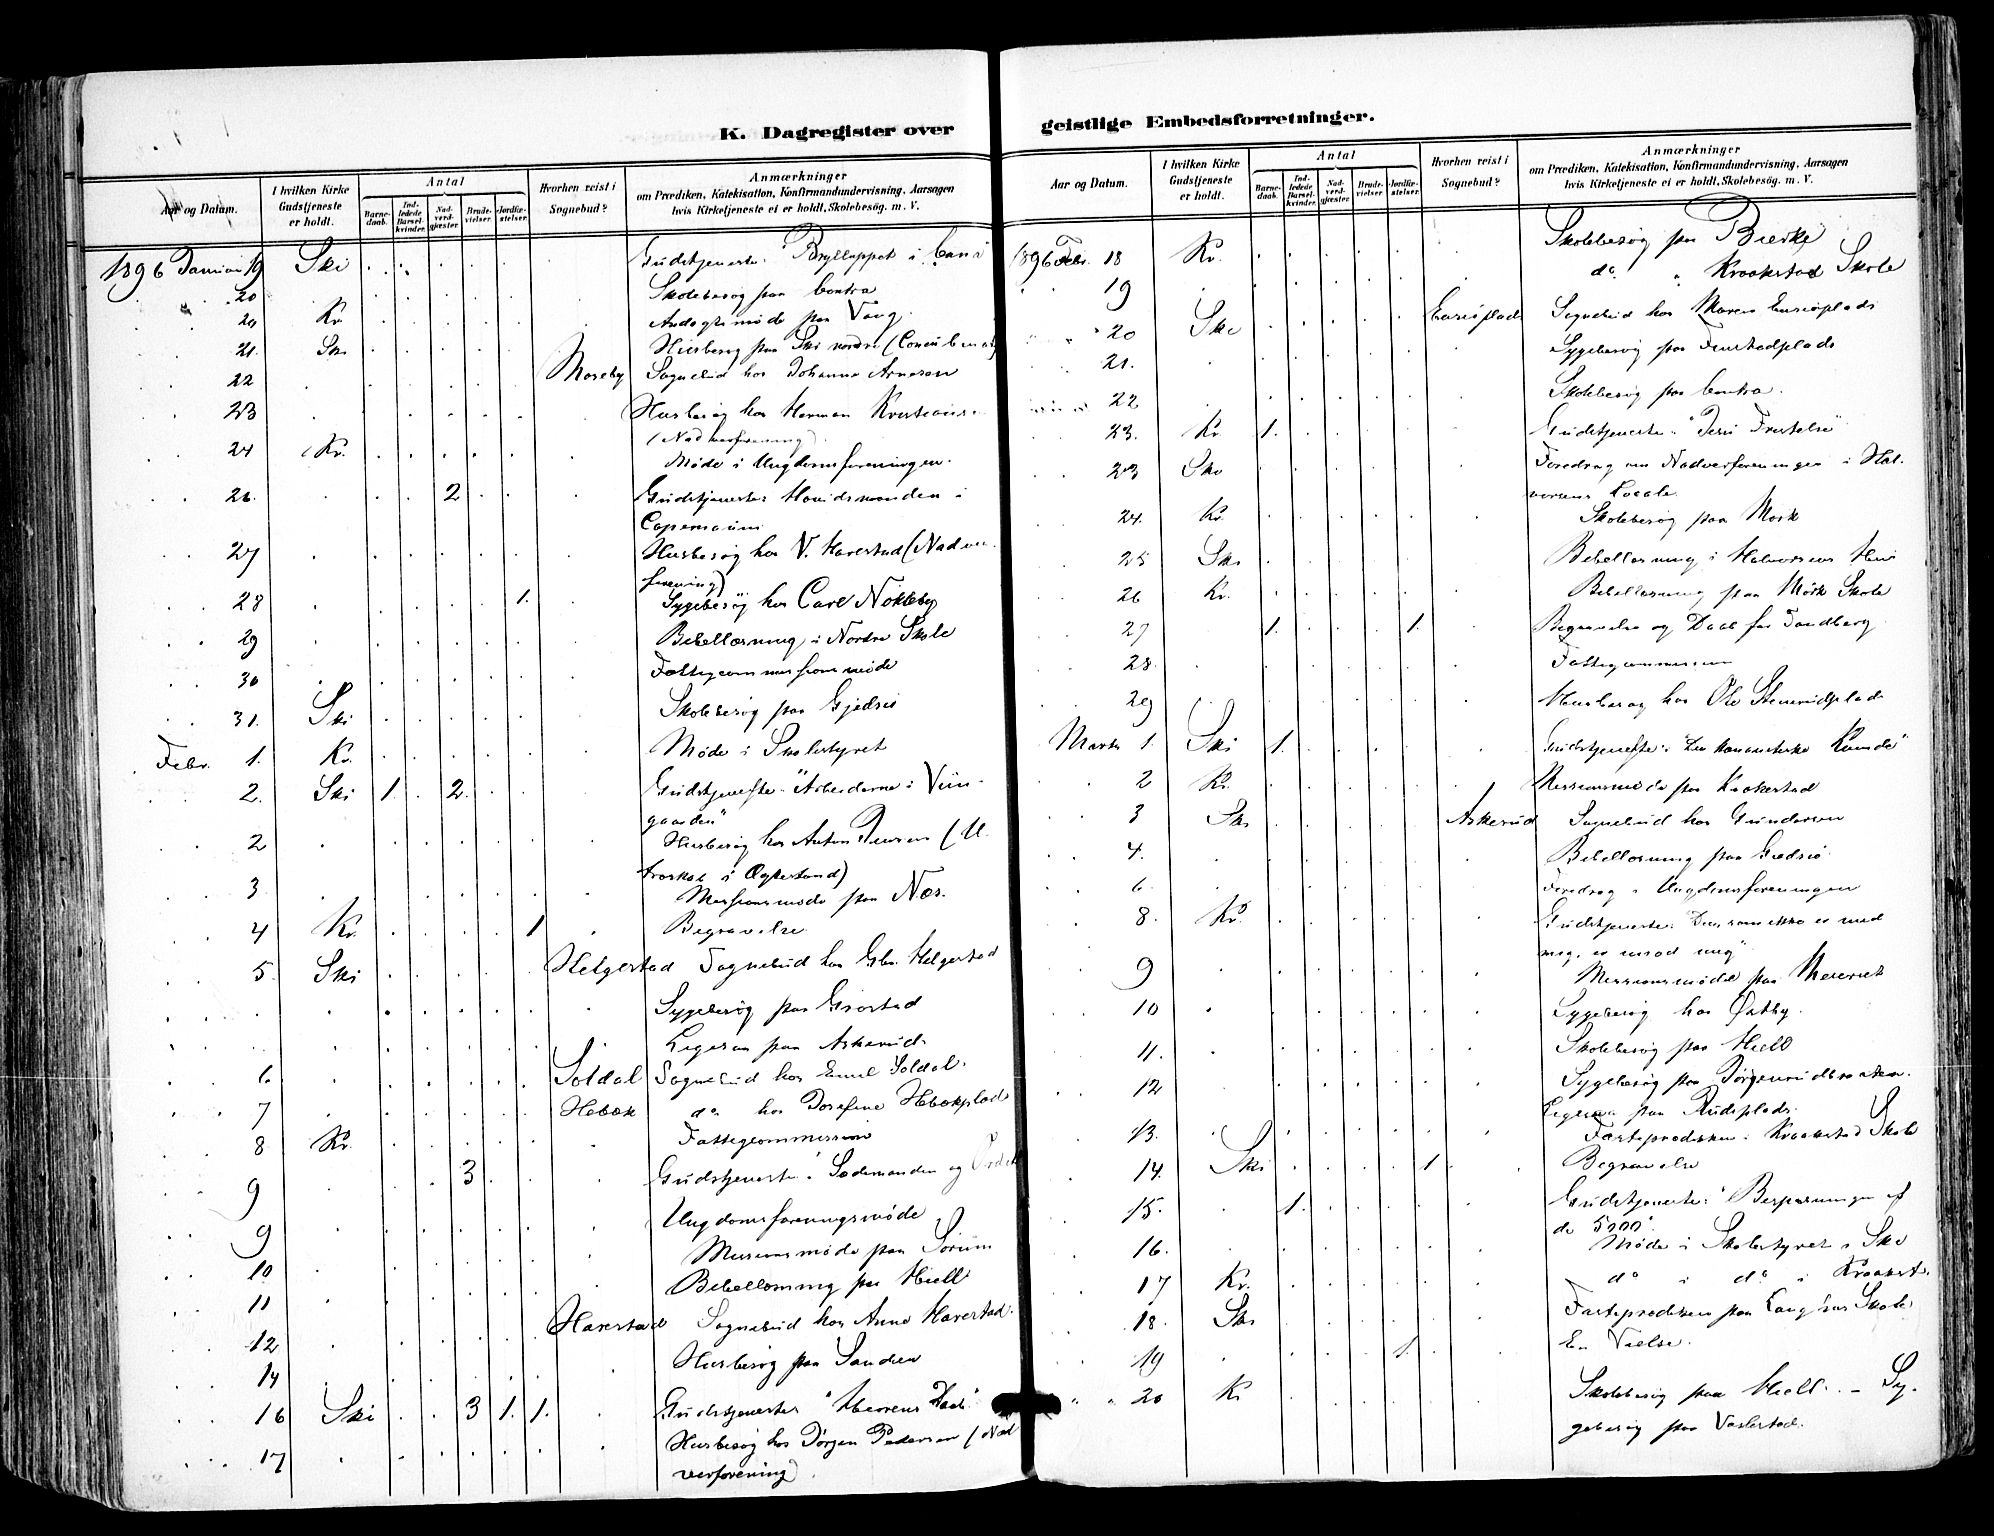 K. Dagregister over
Aar og Datum.
I hvilken Kirke Gudstjeneste er holdt.
Antal
Barnedaab.
Indledede Barselkvinder.
Nadverdgjæster.
Brudevielser.
Jordfæstelser.
Hvorhen reist i Sognebud?
Anmærkninger
om Prædiken, Katekisation, Konfirmandundervisning, Aarsagen
hvis Kirketjeneste ei er holdt, Skolebesøg. m. V.
1896 Januar 19 Ski Gudstjeneste. Brylluppet i Cana
20 Skolebesøg paa Contra
20 Kr Andagtsmøde paa Vang.
21. Ski Husbesøg paa Ski nordre
22 Moseby Sognebud hos Johanna Arnesen
23 Husbesøg hos Herman
(Nadverforening)
24 Kr. Møde i Ungdomsforeningen.
26. 2 Gudstjeneste: Høvidsmanden i
Capernaum
27 Husbesøg hos V. Harestad (Nadver
forening)
28 1. Sygebesøg hos Carl Nökleby
29 Bibellæsning i Nordre Skole
30 Fattigcommissionsmöde
31. Ski Skolebesøg paa Gjedsiö
Febr. 1. Kr. Møde i Skolestyret
2. Ski 1. 2. Gudstjeneste "Arbeiderne i Viin-
gaarden"
2 Husbesøg hos Anton Jensen (U.
troskab i Ægtestand)
3 Missionsmøde paa Næs.
4 Kr. 1 Begravelse.
5. Ski Helgestad Sognebud hos Gbr. Helgestad
Sygebesøg paa Griostad
Ligesaa paa Askerud.
6 Soldal Sognebud hos Emil Soldal.
7 Hebæk do hos Josefine Hebækplads
8 Kr. Fattigcommission
9 3 Gudstjeneste: Sædemanden og Ordet
Ungdomsforeningsmøde
9 Missionsmøde paa Sörum
10 Bibellæsning paa Hiell
11 Harestad Sognebud hos Anne Harestad.
12 Husbesøg paa Sanden
14
16 Ski 3 1. 1. Gudstjeneste
17 Husbesøg hos Jørgen Pedersen (Nad
verforening).
geistlige Embedsforretninger.
Aar og Datum.
I hvilken Kirke Gudstjeneste er holdt.
Antal
Barnedaab.
Indledede Barselkvinder.
Nadverdgjæster.
Brudevielser.
Jordfæstelser.
Hvorhen reist i Sognebud?
Anmærkninger
om Prædiken, Katekisation, Konfirmandundervisning, Aarsagen
hvis Kirketjeneste ei er holdt, Skolebesøg. m. V.
1896 Febr. 18 Kr. Skolebesøg paa Bierke
19 do " Kraakstad Skole
20 Ski Sognebud hos Maren
21. Sygebesøg paa Finstadplads
22 Skolebesøg paa Contra.
23. Kr. 1. Gudstjeneste. "Jesu Fristelse"
23 Ski Foredrag om Nadverforeningen i Hal-
vorsens Locale
24. Kr. Skolebesøg paa Mork
25 Ski Bibellæsning i Halvorsens Hus
26 Kr. Bibellæsning paa Mörk Skole
27 1. 1. Begravelse og Daab for Sandberg
28. Fattigcommission
29 Husbesøg hos Ole Stenerudplads
Marts 1. Ski 1. Gudstjeneste: "Den kananitiske Kvinde"
2 Kr. Missionsmøde paa Kraakestad
3 Ski Askerud Sognebud hos Gundersen
4. Bibellæsning paa Gjedsiö
6. Foredrag i Ungdomsforeningen
8. Kr. Gudstjeneste: "Den som ikke er med
mig, er imod mig"
9 Missionsmödet paa Meieriet
10 Sygebesøg hos Østby.
11. Skolebesøg paa Hiell
12 Sygebesøg paa Jørgenrudbraaten.
Ligesaa paa Rudsplads.
13. Fasteprædiken i Kraakstad Skole
14. Ski 1 Begravelse
15. 1. Gudstjeneste: "Bespisningen af
de 5000".
16. Møde i Skolestyret i Ski
17 Kr. do i do i Kraakst.
18. Ski Fasteprædiken paa Langhus Skole
19 1. En Vielse.
20 Kr Skolebesøg paa Hiell. – Sy-
gebesøg paa Vaslestad.